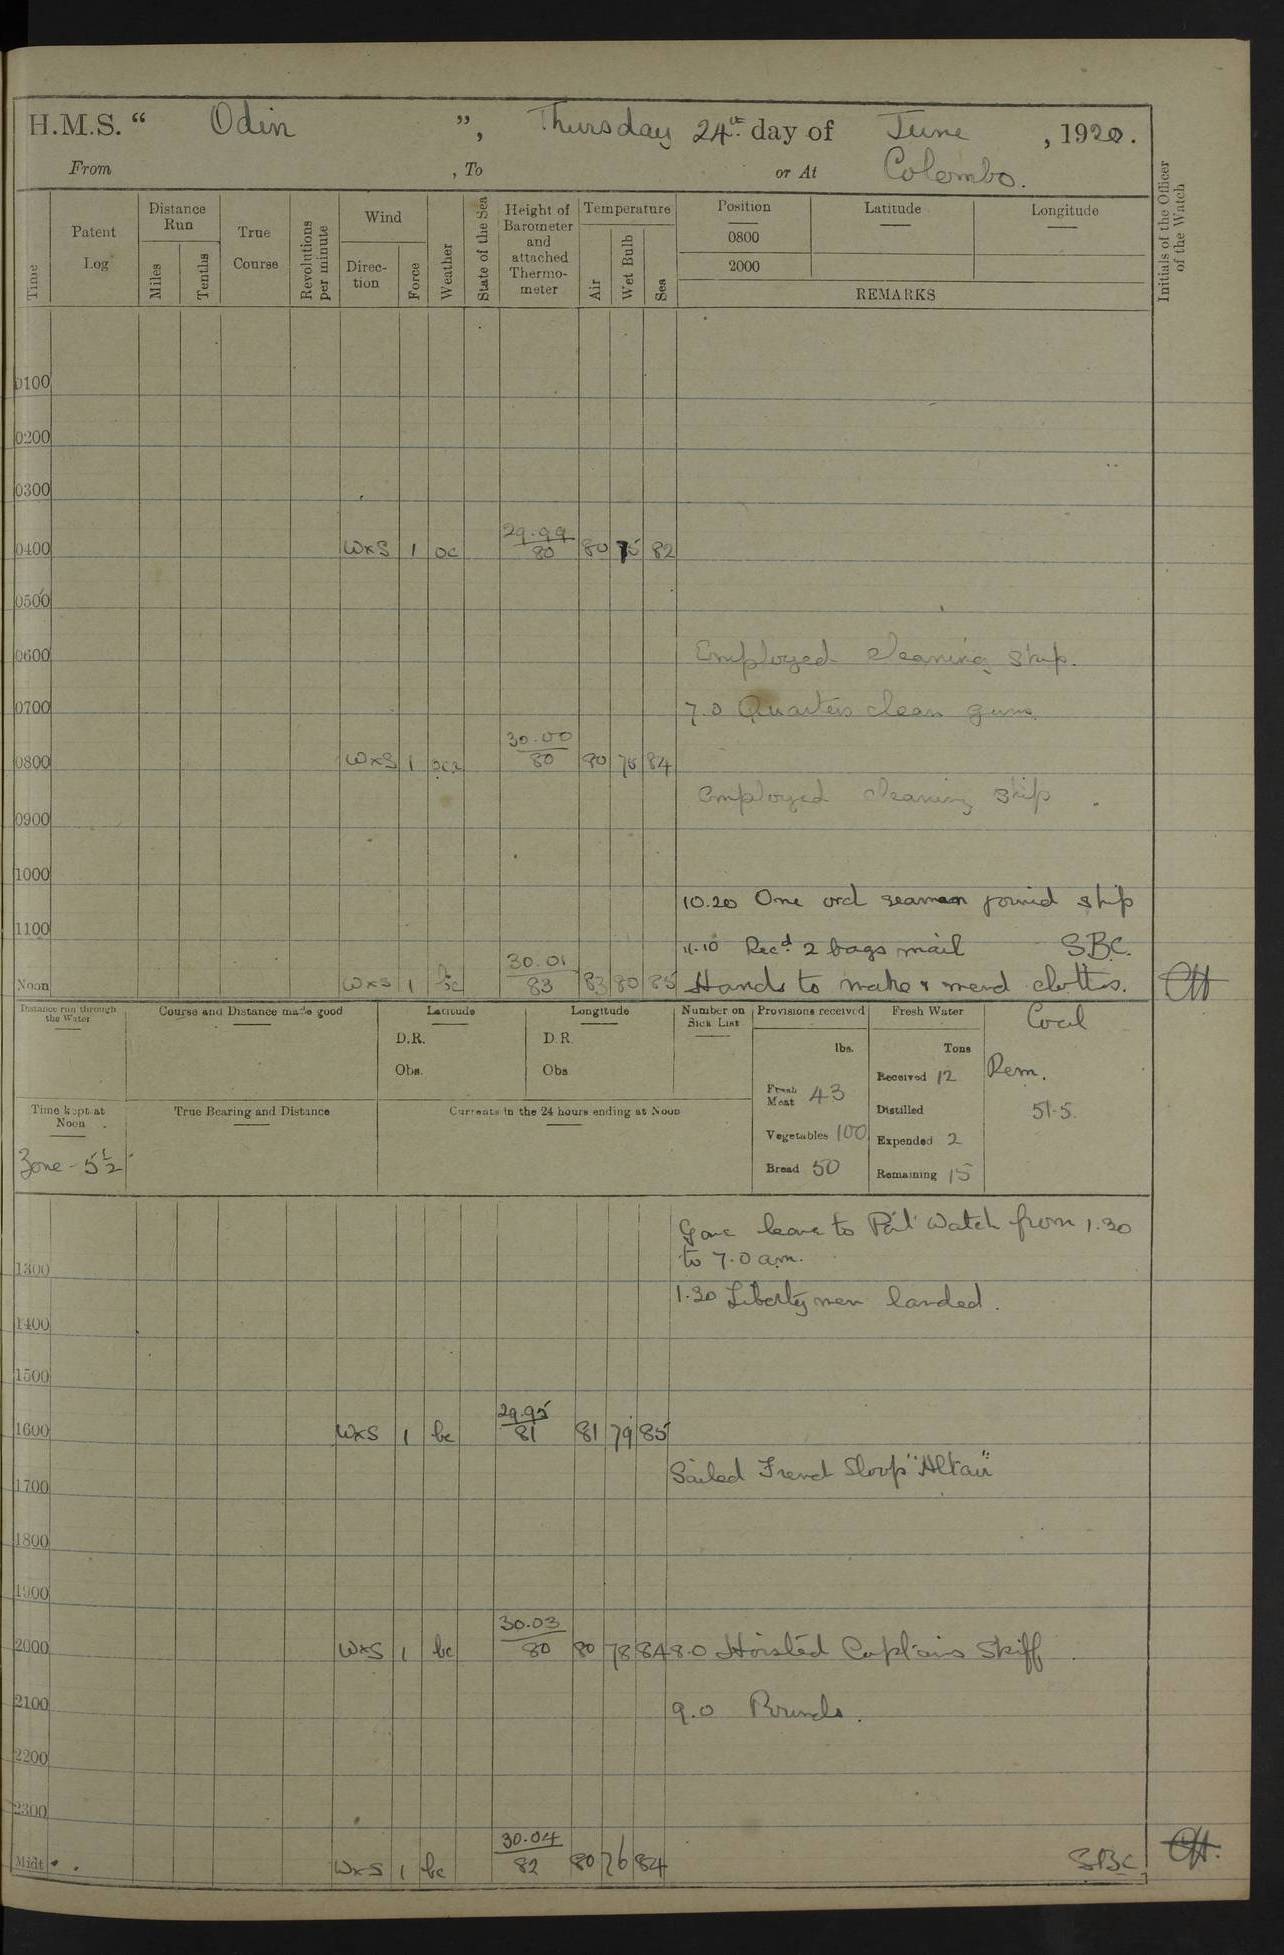 H.M.S. “ Odin ”, Thursday 24th day of June , 1920.
From , To or At Colombo.
Time
Patent Log
Distance Run
Miles
Tenths
True Course
Revolutions per minute
Wind
Direc-tion
Force
Weather
State of the Sea
Height of Barometer and attached Thermo-meter
Temperature
Air
Wet Bulb
Sea
Position Latitude Longitude
0800
2000
REMARKS
Initials of the Officer of the Watch
0100
0200
0300
0400 WxS 1 oc 29.99/80 80 75 82
0500
0600 Employed cleaning ship.
0700 7.0 Quarters clean guns.
0800 WxS 1 30.00/80 80 84
Employed cleaning ship
0900
1000
10.20 One ord seaman joined ship
1100 11.10 Recd 2 bags mail SBC.
Noon WxS 1 bc 30.01/83 83 80 85 Hands to make & mend clothes.
Distance run through the Water
Course and Distance made good
Latitude
D.R.
Obs.
Longitude
D.R.
Obs
Number on Sick List
Provisions received
lbs.
Fresh Meat 43
Vegetables 100
Bread 50
Fresh Water
Tons
Received 12
Distilled
Expended 2
Remaining 15
Coal
Rem.
51.5
Time kept at Noon
Zone - 5½
True Bearing and Distance
Currents in the 24 hours ending at Noon
Gave leave to Part Watch from 1.30
to 7.0 am.
1300 1.30 Liberty men landed.
1400
1500
1600 WxS 1 bc 29.95/81 81 79 85
Sailed French Sloop "Altair"
1700
1800
1900
2000 WxS 1 bc 30.03/80 80 78 84 8.0 Hoisted Captains Skiff
2100 9.0 Rounds.
2200
2300
Midt WxS 1 bc 30.04/82 80 76 84 SBC